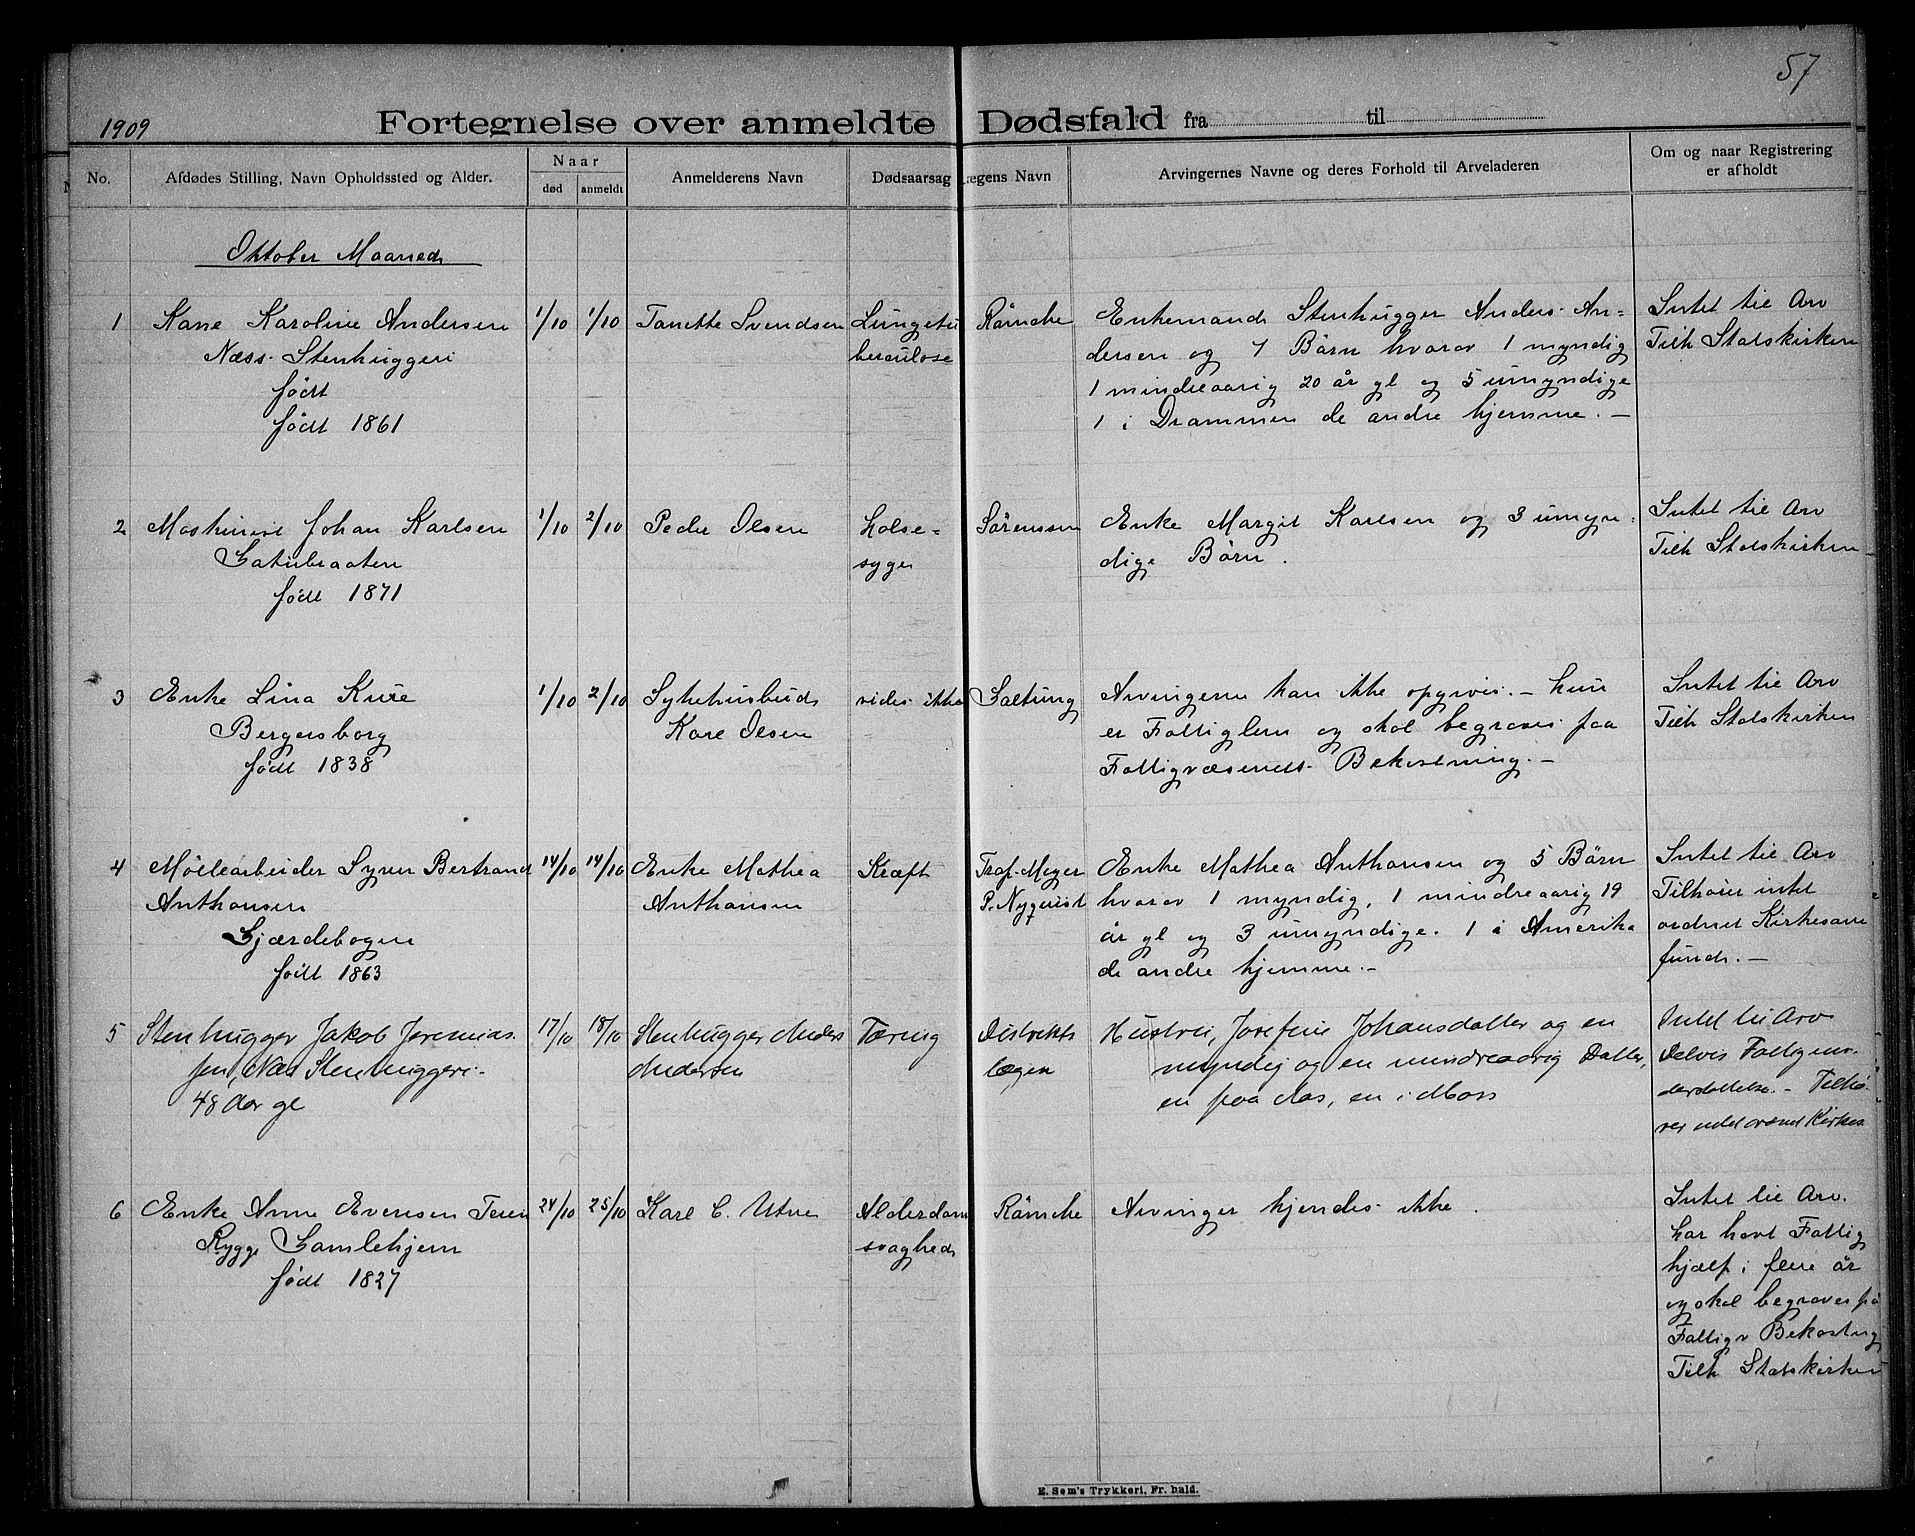 57
1909 Fortegnelse over anmeldte Dødsfald fra til
No. Afdødes Stilling, Navn Opholdssted og Alder. Naar død anmeldt Anmelderens Navn Dødsaarsag Lægens Navn Arvingernes Navne og deres Forhold til Arveladeren Om og naar Registrering er afholdt
Oktober Maaned
1 Kone Karoline Andersen 1/10 1/10 Tanette Svendsen Lungetu Rømcke Enkemand Stenhugger Anders An= Intet til Arv
Næss Stenhuggeri berculose dersen og 7 Børn hvorav 1 myndig Tilh Statskirken
født 1 mindreaarig 20 år gl og 5 umyndige
født 1861 1 i Drammen de andre hjemme. –
2 Maskinist Johan Karlsen 1/10 2/10 Peder Olsen Halse- Sørenssen Enke Margit Karlsen og 3 umyn- Intet til Arv
syge dige Børn. Tilh Statskirken
født 1871
3 Enke Lina Kure 1/10 2/10 Sykehusbud vides ikke Arvingerne kan ikke opgives. – hun Intet til Arv
Bergersborg Kare Olsen er Fattiglem og skal begraves paa Tilh Statskirken
født 1838 Fattigvæsenets Bekostning. –
4 Møllearbeider Syver Bertrand 14/10 14/10 Enke Mathea Kræft Prof. Meyer Enke Mathea Anthonsen og 5 Børn Intet til Arv
Anthonsen Anthonsen P. Nyquist hvorav 1 myndig, 1 mindreaarig 19 Tilhører intet
Gjærdebogen år gl og 3 umyndige. 1 i Amerika ordnet Kirkesam
født 1863 de andre hjemme. – fund. –
5 Stenhugger Jakob Jeremias- 17/10 18/10 Stenhugger Anders Tæring Distrikts Hustru, Josefine Johansdatter og en Intet til Arv
sen, Næs Stenhuggeri. Andersen lægen myndig og en mindreaarig Datter, Delvis Fattigun-
48 Aar gl en paa Aas, en i Moss derstøttelse. – Tilhø-
rer intet ordnet Kirkes
6 Enke Anne Evensen 24/10 25/10 Karl C. Utne Alderdoms Rømcke Arvinger kjendes ikke. Intet til Arv.
Rygge Gamlehjem svaghed har havt Fattig
født 1827 hjælp i flere år
og skal begraves på
Fattigv Bekostnig
Tilh Statskirken
E. Sem's Trykkeri, Fr. hald.